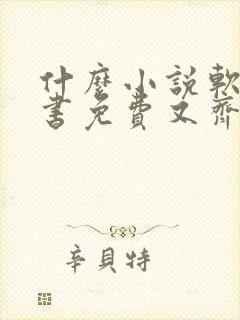 什麼小說軟
書免費又齊
辛貝特